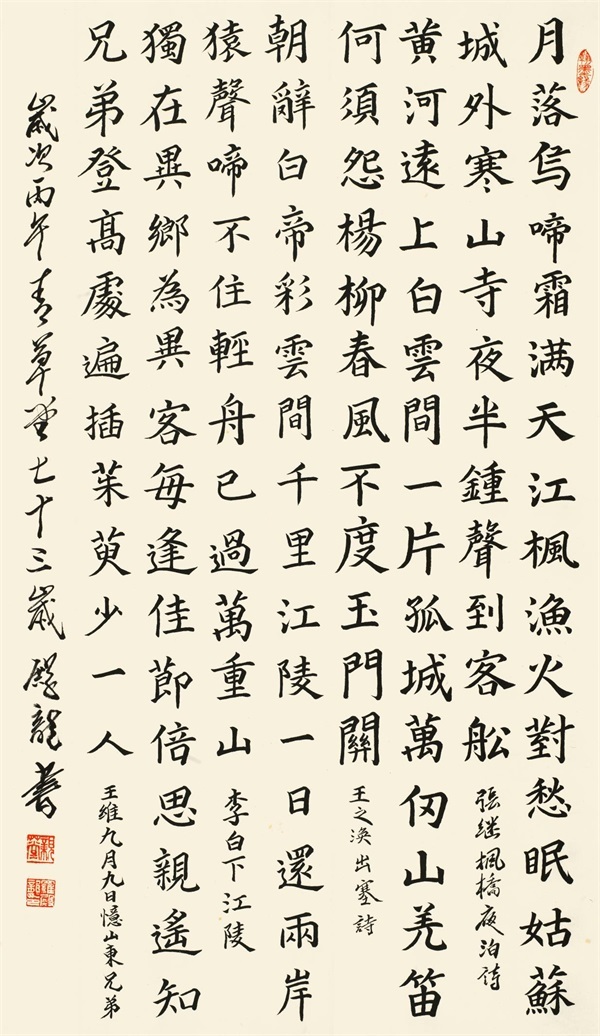 月落烏啼霜满天江楓漁火對愁眠姑蘇
城外寒山寺夜半鍾聲到客舩
張继楓橋夜泊詩
黄河遠上白雲間一片孤城萬仞山羌笛
何須怨楊柳春風不度玉門關
王之涣出塞詩
朝辭白帝彩雲間千里江陵一日還兩岸
猿聲啼不住輕舟已過萬重山
李白下江陵
獨在異鄉為異客每逢佳節倍思親遥知
兄弟登髙處遍插茱萸少一人
王维九月九日憶山東兄弟
嵗次丙午青草堂七十三嵗龍書